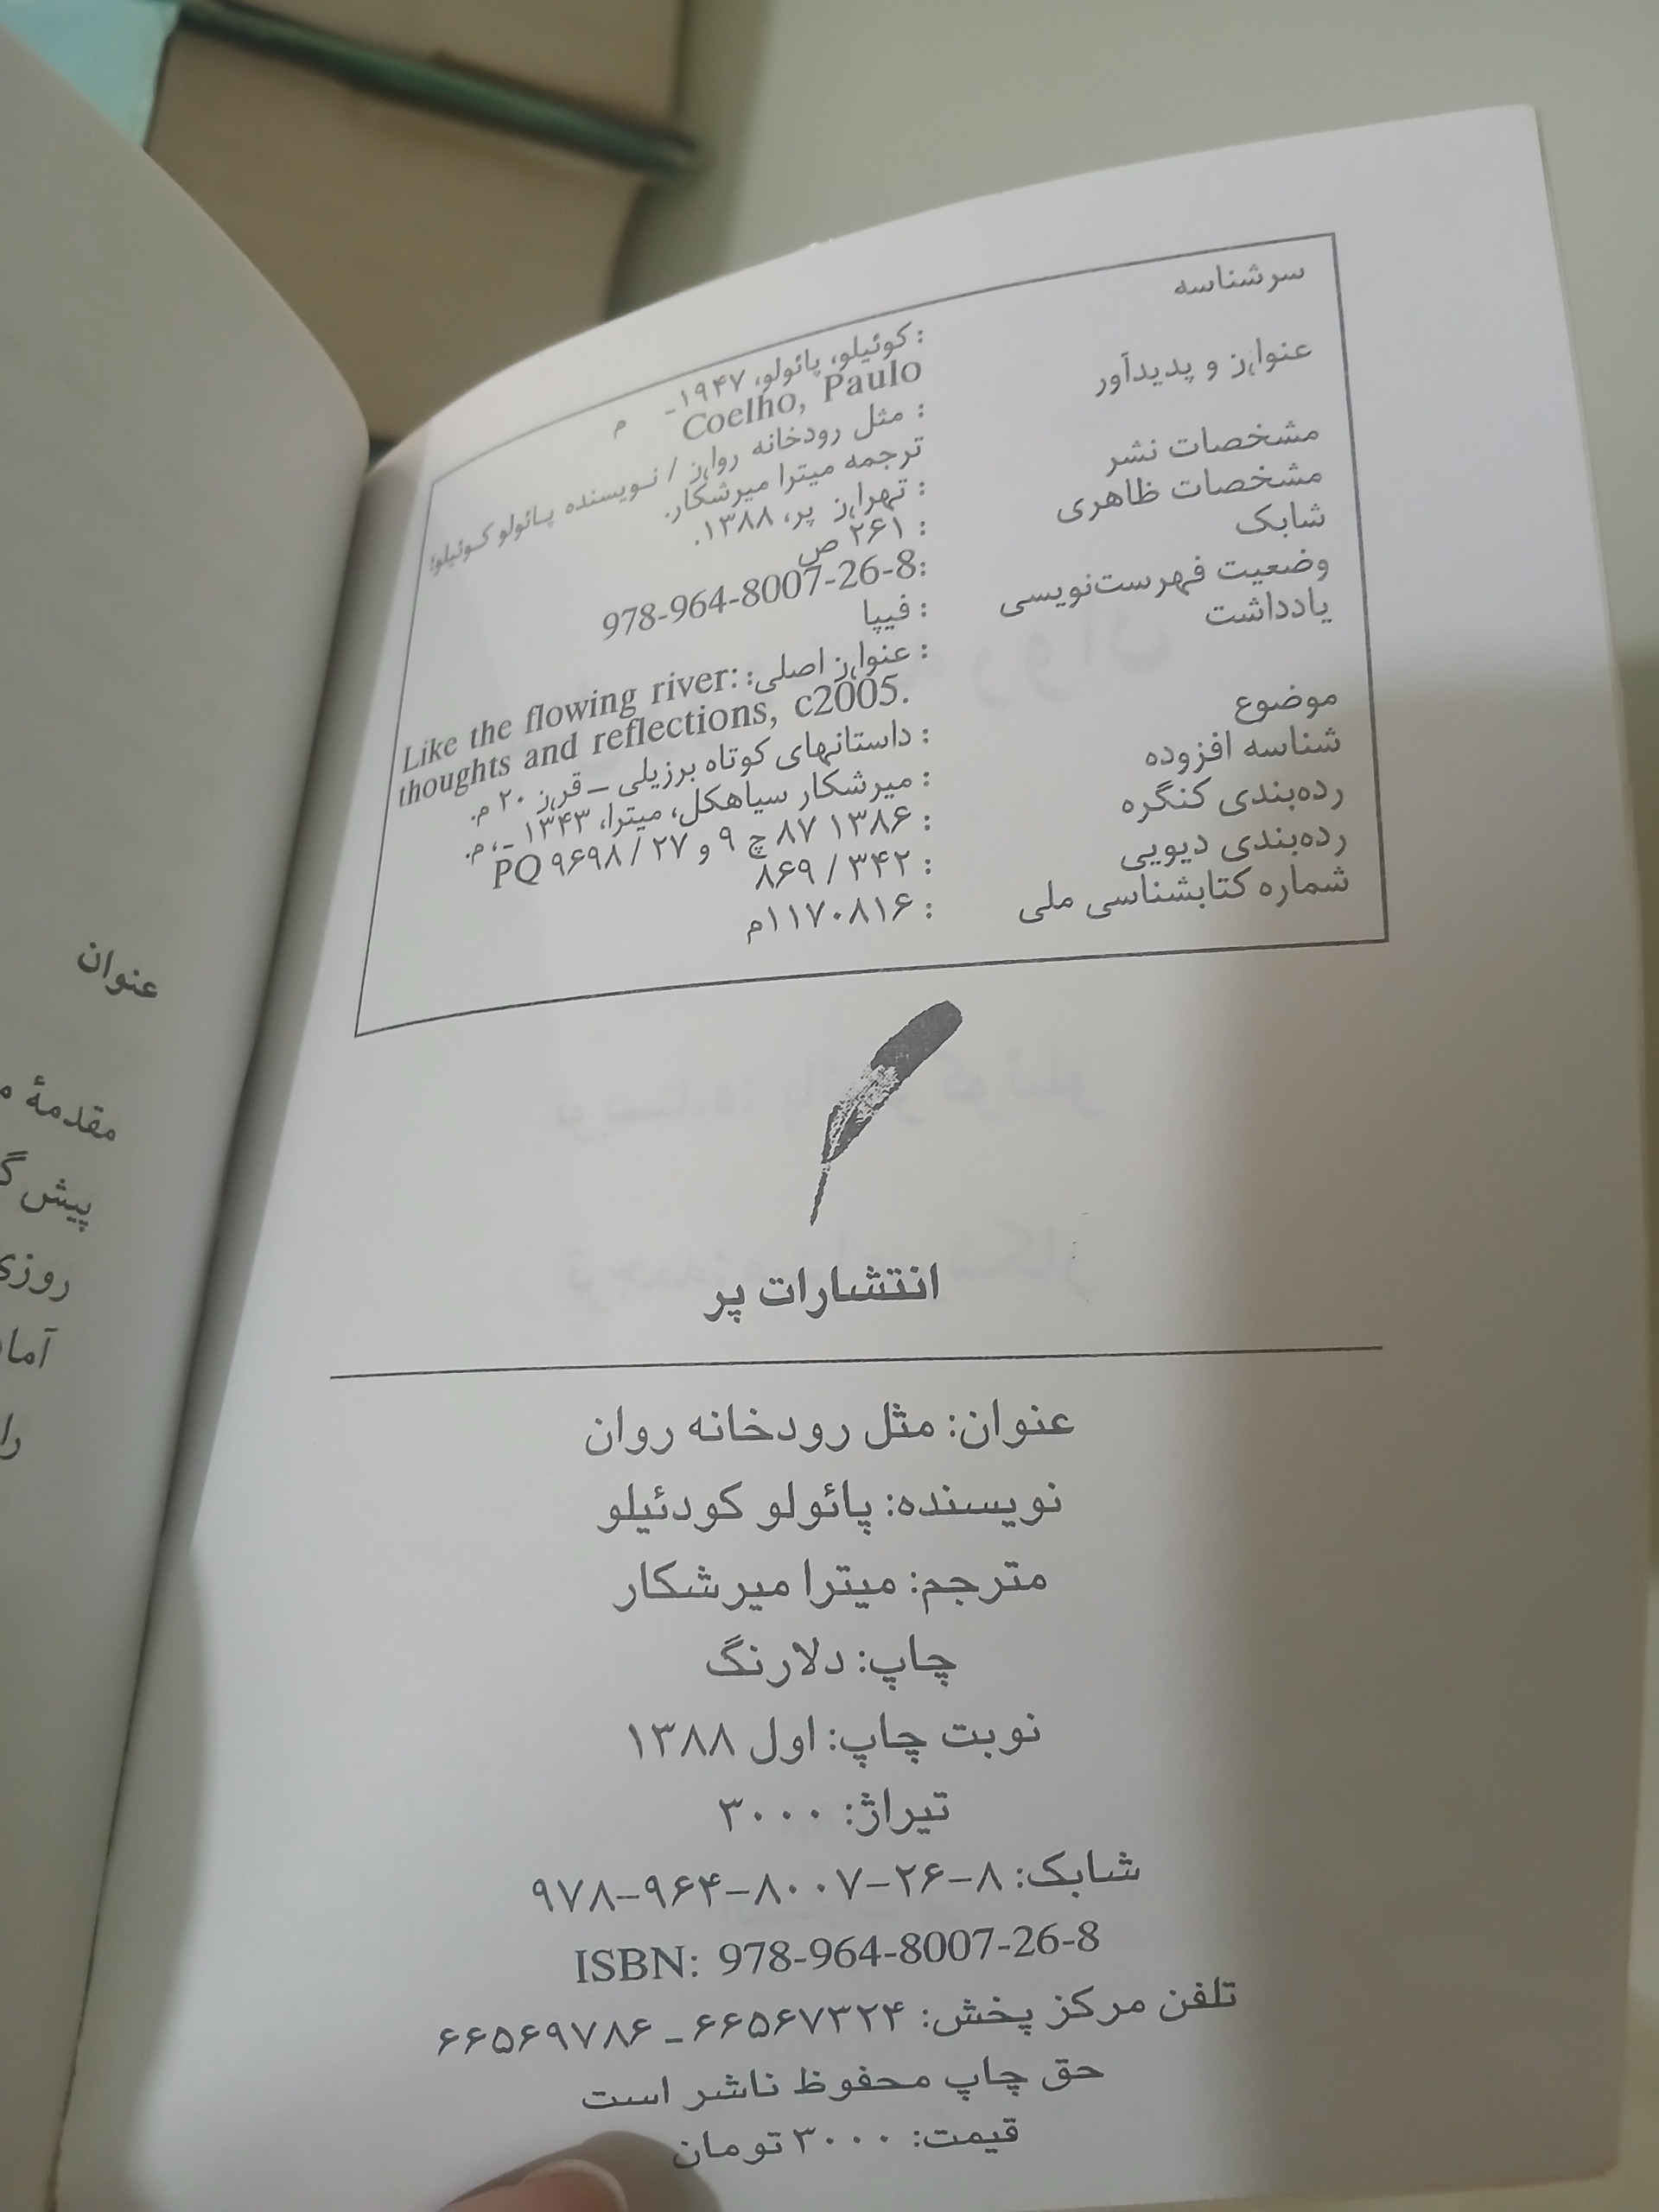 سرشناسه : کوئیلو، پائولو، ۱۹۴۷- م
Coelho, Paulo
عنوان و پدیدآور : مثل رودخانه روان / نویسنده پائولو کوئیلو؛
ترجمه میترا میرشکار.
مشخصات نشر : تهران پر، ۱۳۸۸.
مشخصات ظاهری : ۲۶۱ ص
شابک :978-964-8007-26-8
وضعیت فهرست‌نویسی : فیپا
یادداشت : عنوان اصلی: Like the flowing river:
thoughts and reflections, c2005.
موضوع : داستانهای کوتاه برزیلی – قرن ۲۰ م.
شناسه افزوده : میرشکار سیاهکل، میترا، ۱۳۴۳ -، م.
رده‌بندی کنگره : ۱۳۸۶ ۸۷ چ ۹ و ۲۷ / PQ ۹۶۹۸
رده‌بندی دیویی : ۳۴۲ / ۸۶۹
شماره کتابشناسی ملی : ۱۱۷۰۸۱۶م
انتشارات پر
عنوان: مثل رودخانه روان
نویسنده: پائولو کودئیلو
مترجم: میترا میرشکار
چاپ: دلارنگ
نوبت چاپ: اول ۱۳۸۸
تیراژ: ۳۰۰۰
شابک: ۸-۲۶-۸۰۰۷-۹۶۴-۹۷۸
ISBN: 978-964-8007-26-8
تلفن مرکز پخش: ۶۶۵۶۷۳۲۴ - ۶۶۵۶۹۷۸۶
حق چاپ محفوظ ناشر است
قیمت: ۳۰۰۰ تومان
عنوان
مقدمهٔ